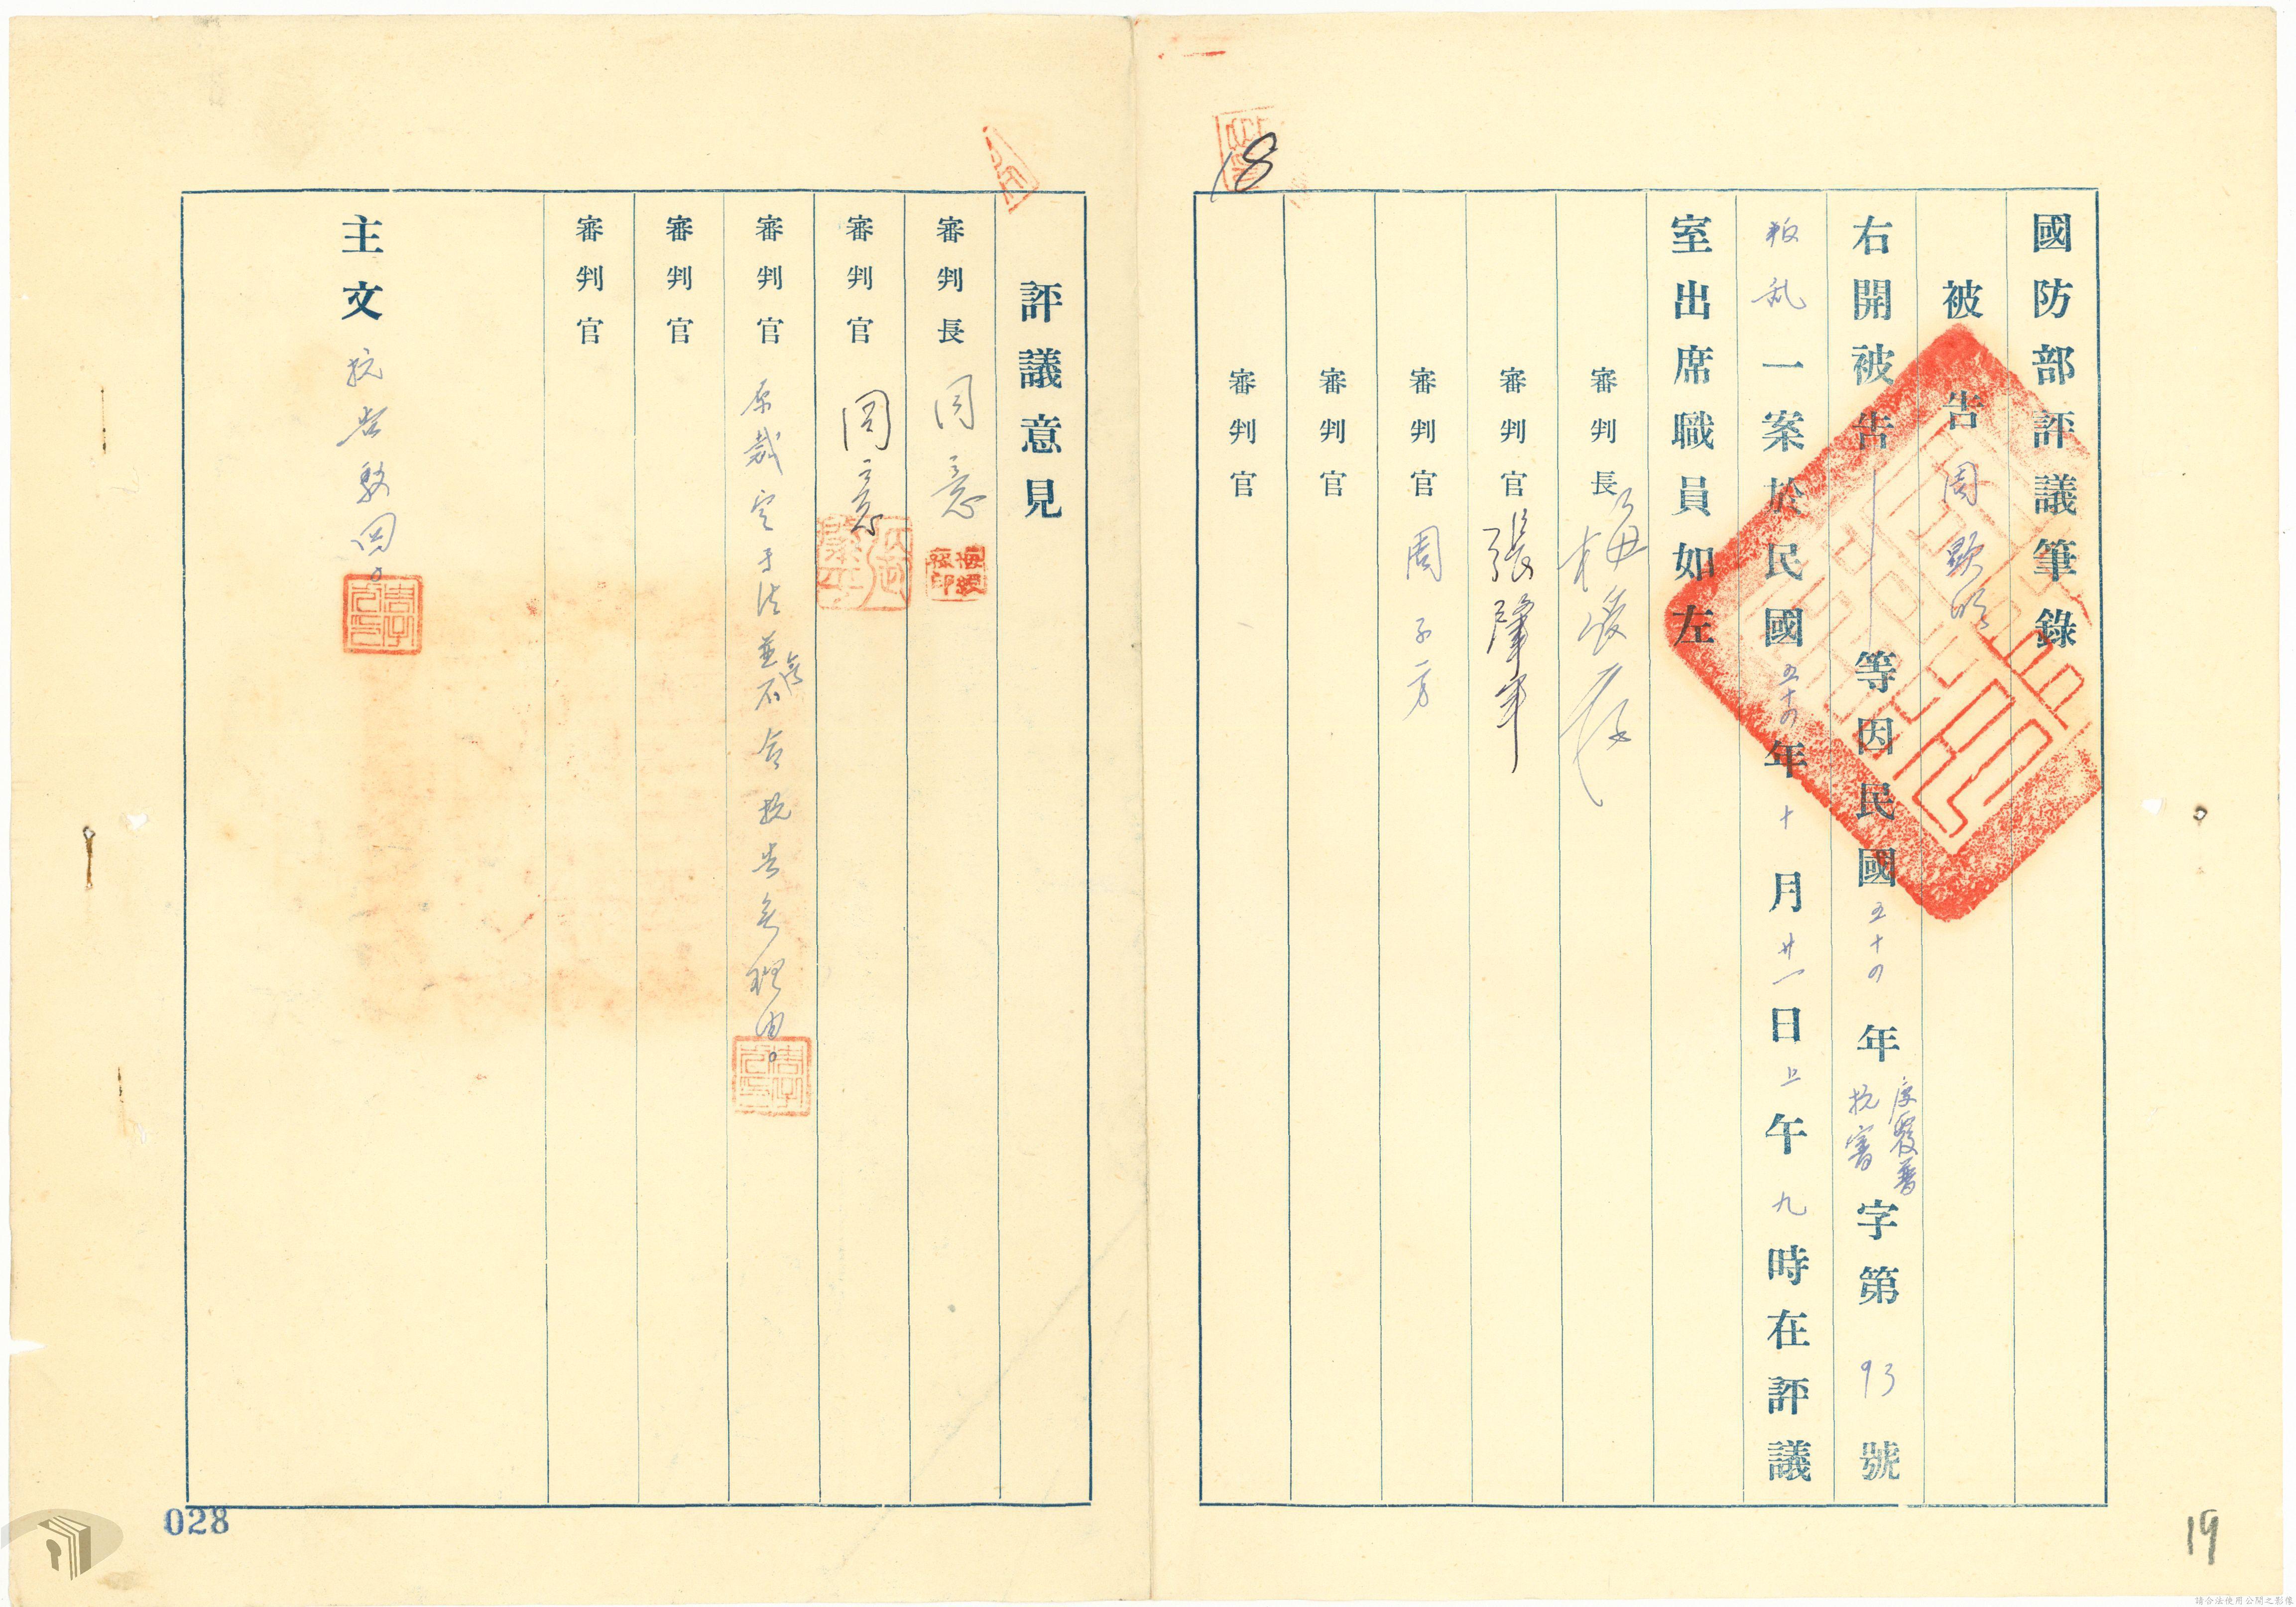 國防部評議筆錄
被告 周
右開被告 等因民國五十四年度覆普抗審字第93號
叛乱一案於民國五十四年十月廿一日上午九時在評議
室出席職員如左
審判長 梅
審判官 張肇平
審判官 周子方
審判官
審判官
18
評議意見
審判長 同意
審判官 同意
審判官 原裁定于法並無不合抗告無理由。
審判官
審判官
主文 抗告駁回。
028
19
請合法使用公開之影像